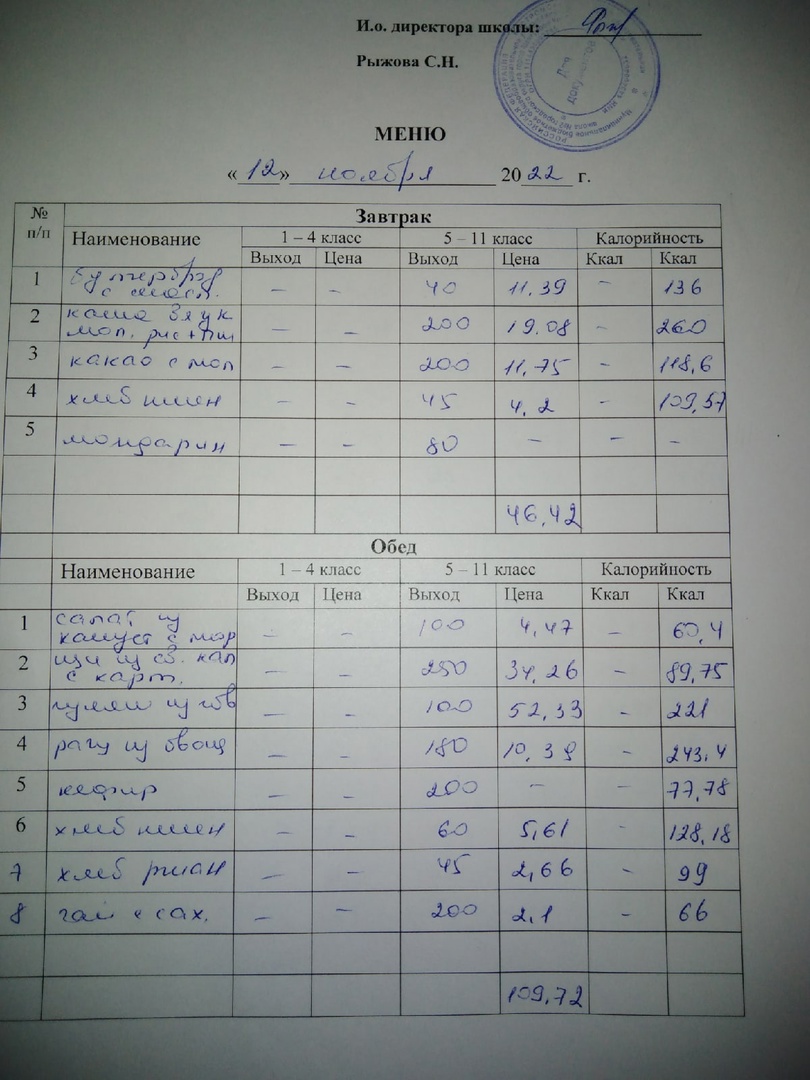 И.о. директора школы:
Рыжова С.Н.
Для документов
МЕНЮ
«12» ноября 2022 г.
№ п/п Завтрак
Наименование 1 – 4 класс 5 – 11 класс Калорийность
Выход Цена Выход Цена Ккал Ккал
1 бутерброд с масл. – – 40 11,39 – 136
2 каша вязк мол. рис + пш – – 200 19,08 – 260
3 какао с мол – – 200 11,75 – 118,6
4 хлеб пшен – – 45 4,2 – 109,57
5 мондарин – – 80 – – –
46,42
Обед
Наименование 1 – 4 класс 5 – 11 класс Калорийность
Выход Цена Выход Цена Ккал Ккал
1 салат из капуст с мор – – 100 4,47 – 60,4
2 щи из св. кап с карт. – – 250 34,26 – 89,75
3 гуляш из гов – – 100 52,33 – 221
4 рагу из овощ – – 180 10,39 – 243,4
5 кефир – – 200 – – 77,78
6 хлеб пшен – – 60 5,61 – 128,18
7 хлеб ржан – – 45 2,66 – 99
8 чай с сах. – – 200 2,1 – 66
109,72